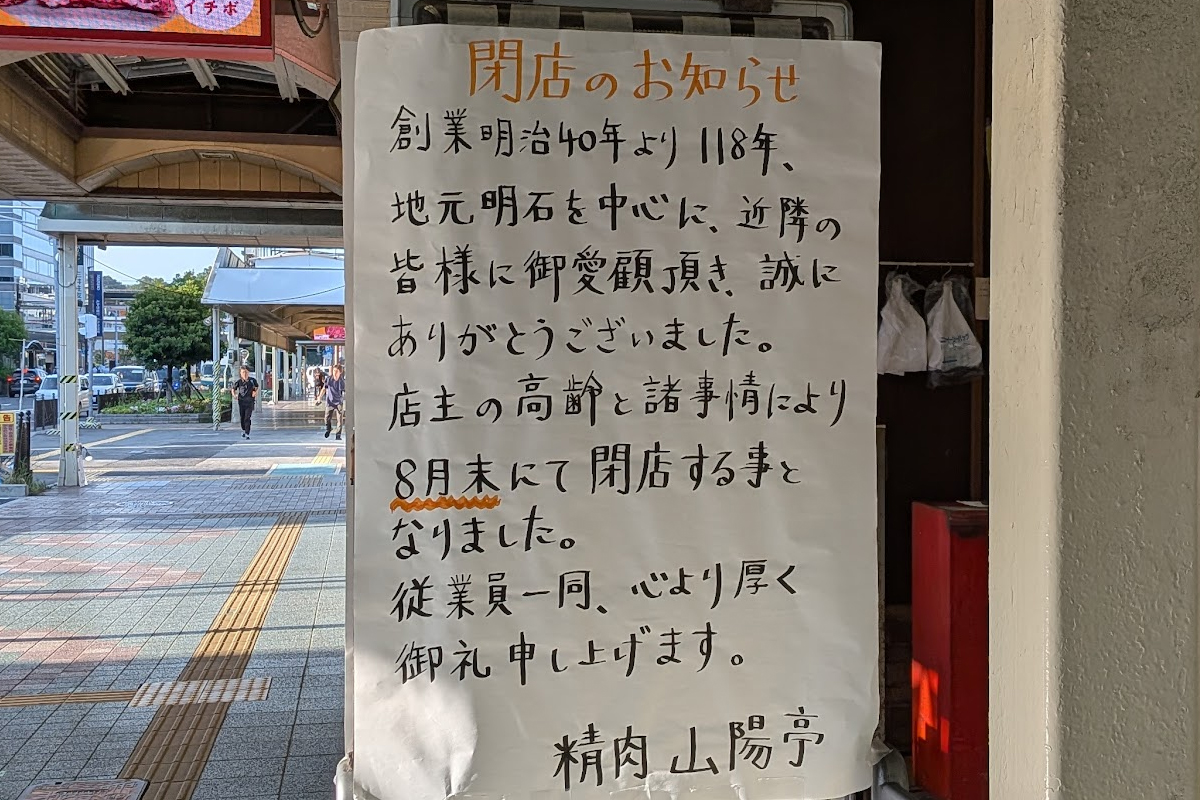 イチボ
閉店のお知らせ
創業明治40年より118年、
地元明石を中心に、近隣の
皆様に御愛顧頂き、誠に
ありがとうございました。
店主の高齢と諸事情により
8月末にて閉店する事と
なりました。
従業員一同、心より厚く
御礼申し上げます。
精肉 山陽亭